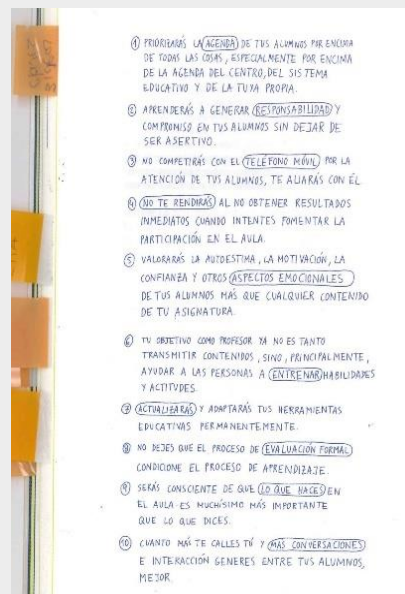 ① PRIORIZARÁS LA AGENDA DE TUS ALUMNOS POR ENCIMA
DE TODAS LAS COSAS, ESPECIALMENTE POR ENCIMA
DE LA AGENDA DEL CENTRO, DEL SISTEMA
EDUCATIVO Y DE LA TUYA PROPIA.
② APRENDERÁS A GENERAR RESPONSABILIDAD Y
COMPROMISO EN TUS ALUMNOS SIN DEJAR DE
SER ASERTIVO.
③ NO COMPETIRÁS CON EL TELÉFONO MÓVIL POR LA
ATENCIÓN DE TUS ALUMNOS, TE ALIARÁS CON ÉL.
④ NO TE RENDIRÁS AL NO OBTENER RESULTADOS
INMEDIATOS CUANDO INTENTES FOMENTAR LA
PARTICIPACIÓN EN EL AULA.
⑤ VALORARÁS LA AUTOESTIMA, LA MOTIVACIÓN, LA
CONFIANZA Y OTROS ASPECTOS EMOCIONALES
DE TUS ALUMNOS MÁS QUE CUALQUIER CONTENIDO
DE TU ASIGNATURA.
⑥ TU OBJETIVO COMO PROFESOR YA NO ES TANTO
TRANSMITIR CONTENIDOS, SINO, PRINCIPALMENTE,
AYUDAR A LAS PERSONAS A ENTRENAR HABILIDADES
Y ACTITUDES.
⑦ ACTUALIZARÁS Y ADAPTARÁS TUS HERRAMIENTAS
EDUCATIVAS PERMANENTEMENTE.
⑧ NO DEJES QUE EL PROCESO DE EVALUACIÓN FORMAL
CONDICIONE EL PROCESO DE APRENDIZAJE.
⑨ SERÁS CONSCIENTE DE QUE LO QUE HACES EN
EL AULA ES MUCHÍSIMO MÁS IMPORTANTE
QUE LO QUE DICES.
⑩ CUANTO MÁS TE CALLES TÚ Y MÁS CONVERSACIONES
E INTERACCIÓN GENERES ENTRE TUS ALUMNOS,
MEJOR